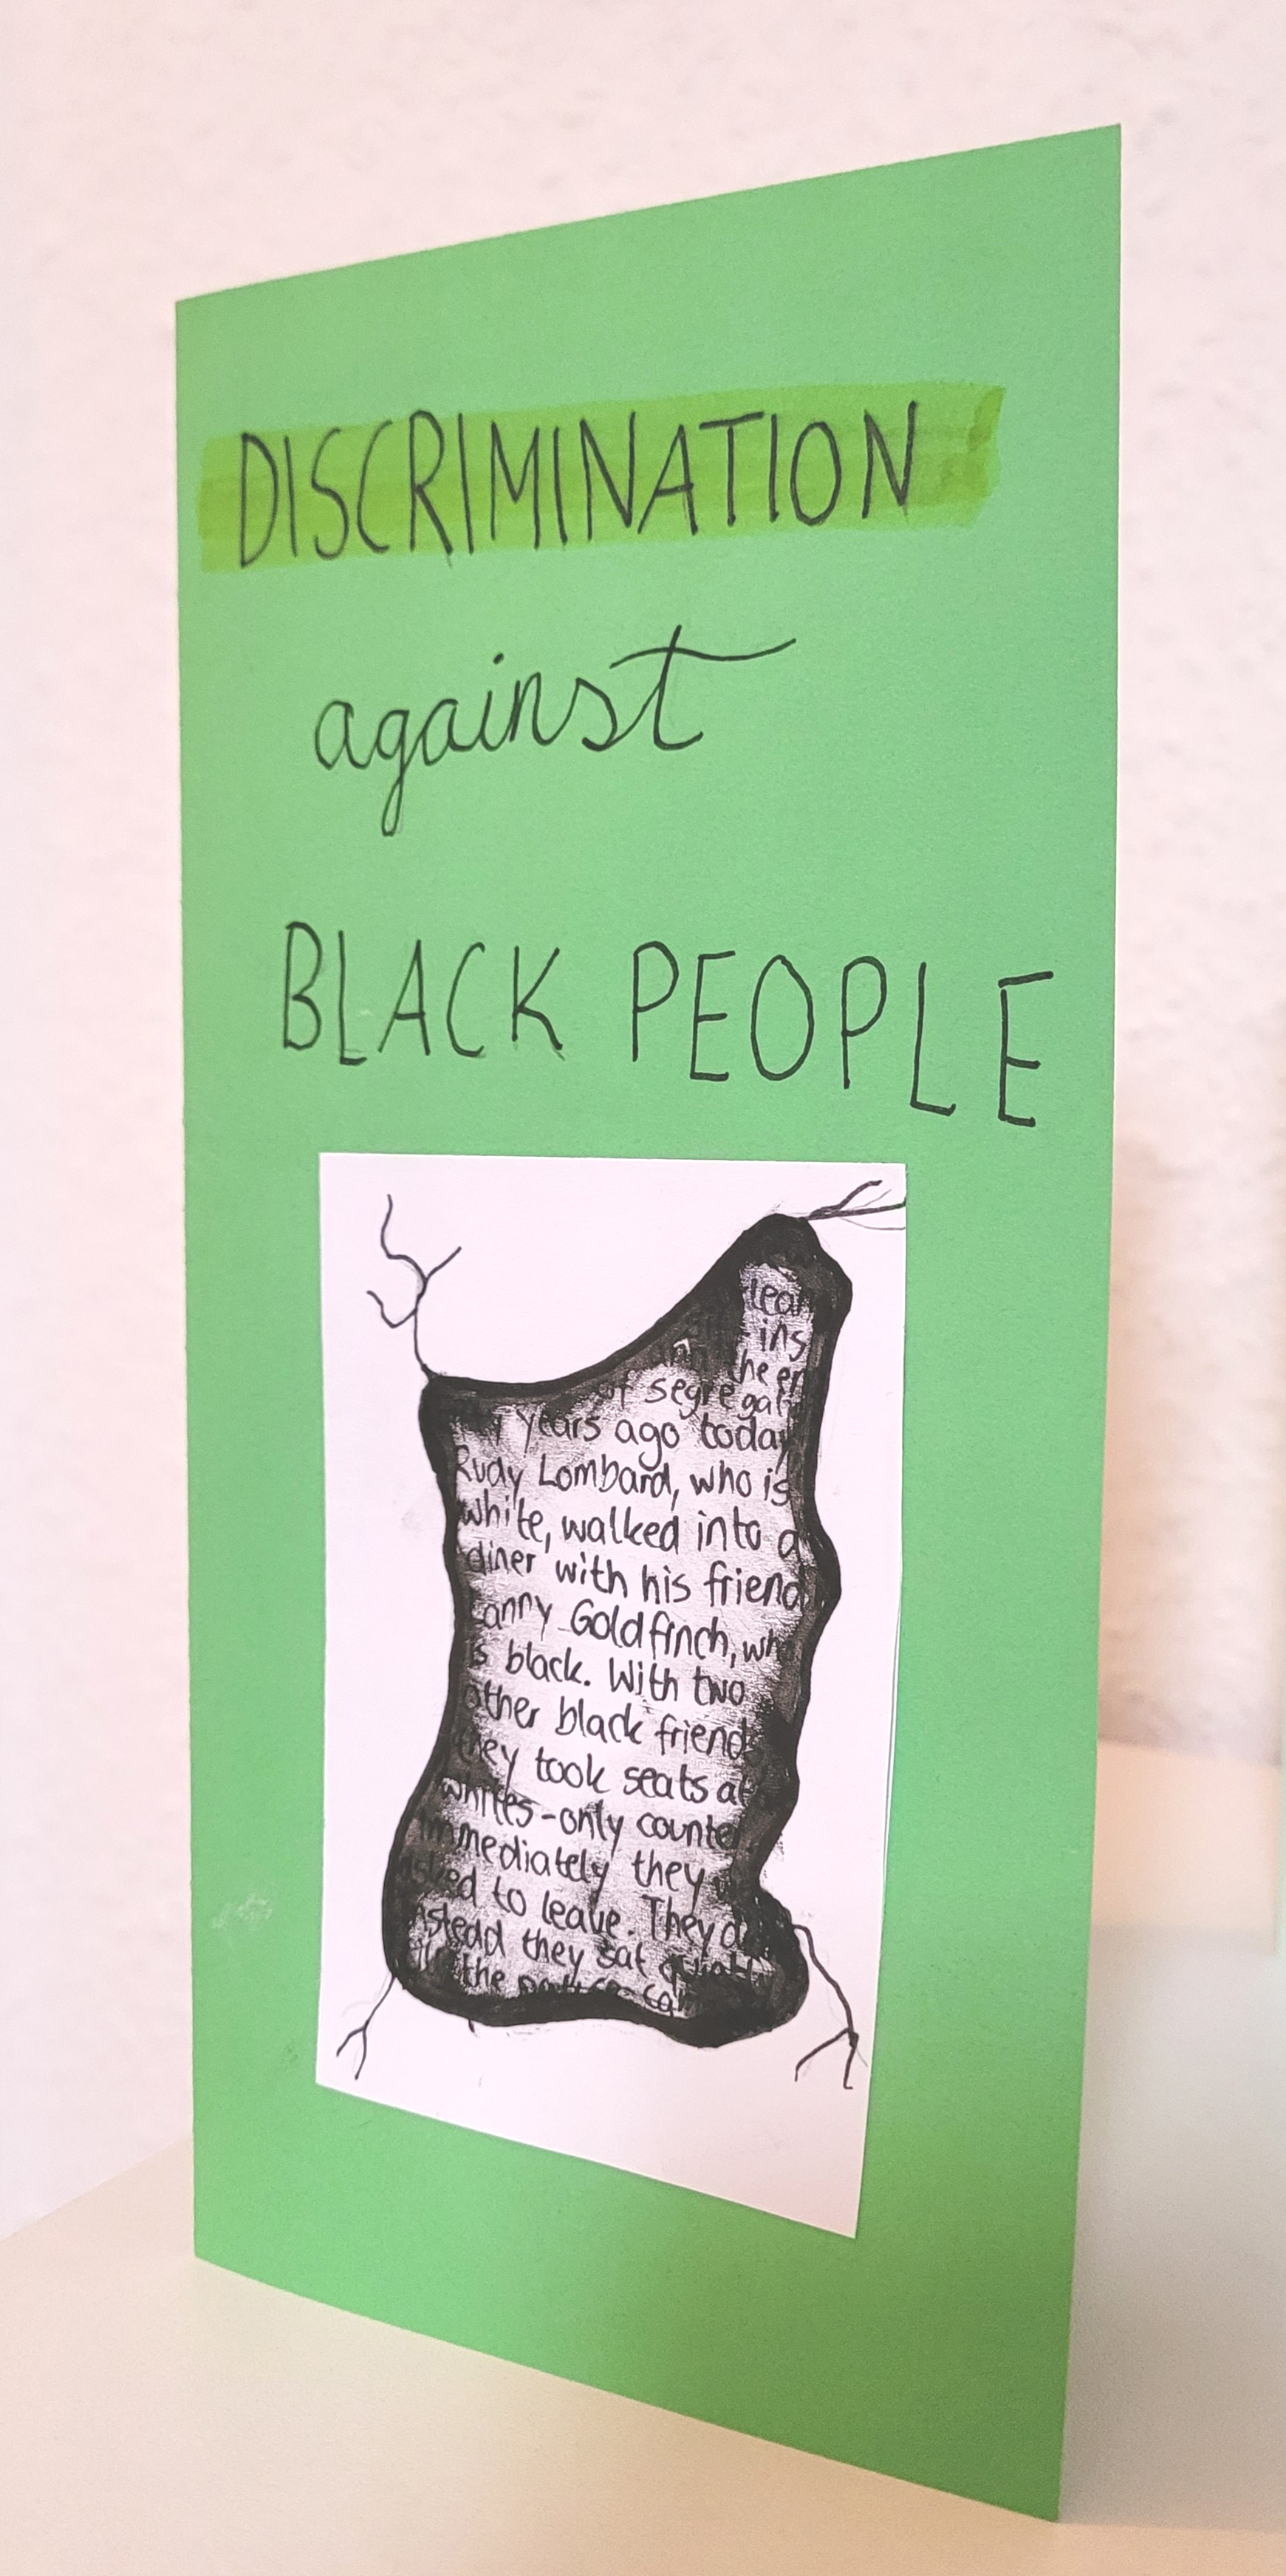 DISCRIMINATION
against
BLACK PEOPLE
lean
ins
the en
of segregati
years ago today
Rudy Lombard, who is
white, walked into a
diner with his friend
anny Goldfinch, who
is black. With two
other black friends
they took seats at
whites-only counter
immediately they
asked to leave. They d
nstead they sat quietl
the